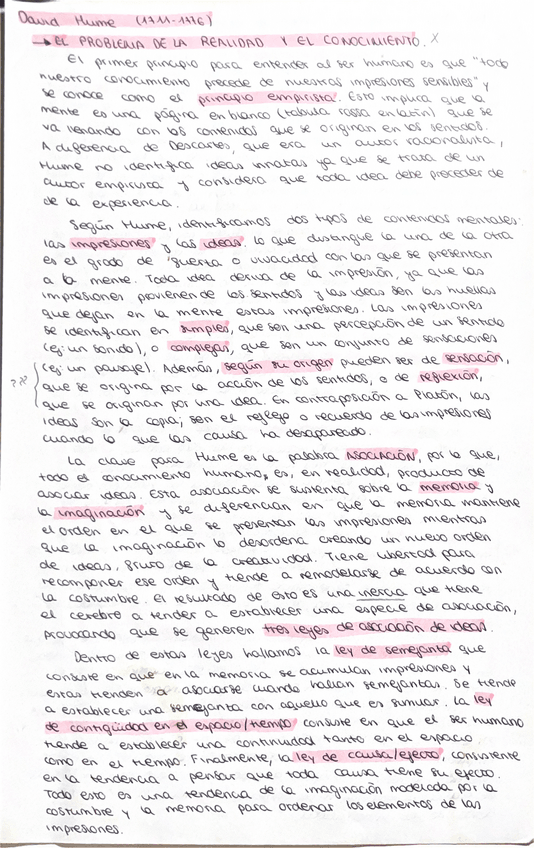 David Hume (1711-1776)
→ EL PROBLEMA DE LA REALIDAD Y EL CONOCIMIENTO. X
El primer principio para entender al ser humano es que "todo
nuestro conocimiento precede de nuestras impresiones sensibles" y
se conoce como el principio empirista. Esto implica que la
mente es una página en blanco (tabula rassa en latín) que se
va llenando con los contenidos que se originan en los sentidos.
A diferencia de Descartes, que era un autor racionalista,
Hume no identifica ideas innatas ya que se trata de un
autor empirista y considera que toda idea debe proceder de
de la experiencia.
Según Hume, identificamos dos tipos de contenidos mentales:
las impresiones y las ideas. Lo que distingue la una de la otra
es el grado de fuerza o vivacidad con las que se presentan
a la mente. Toda idea deriva de la impresión, ya que las
impresiones provienen de los sentidos y las ideas son las huellas
que dejan en la mente estas impresiones. Las impresiones
se identifican en simples, que son una percepción de un sentido
(ej: un sonido), o complejas, que son un conjunto de sensaciones
(ej: un paisaje). Además, según su origen pueden ser de sensación,
?? que se origina por la acción de los sentidos, o de reflexión,
que se originan por una idea. En contraposición a Platón, las
ideas son la copia, son el reflejo o recuerdo de las impresiones
cuando lo que las causa ha desaparecido.
La clave para Hume es la palabra ASOCIACIÓN, por la que,
todo el conocimiento humano, es, en realidad, producto de
asociar ideas. Esta asociación se sustenta sobre la memoria y
la imaginación y se diferencian en que la memoria mantiene
el orden en el que se presentan las impresiones mientras
que la imaginación lo desordena creando un nuevo orden
de ideas, fruto de la creatividad. Tiene libertad para
recomponer ese orden y tiende a remodelarse de acuerdo con
la costumbre. El resultado de esto es una inercia que tiene
el cerebro a tender a establecer una especie de asociación,
provocando que se generen tres leyes de asociación de ideas.
Dentro de estas leyes hallamos la ley de semejanza que
consiste en que en la memoria se acumulan impresiones y
estas tienden a asociarse cuando hallan semejanzas. Se tiende
a establecer una semejanza con aquello que es similar. La ley
de contigüidad en el espacio/tiempo consiste en que el ser humano
tiende a establecer una continuidad tanto en el espacio
como en el tiempo. Finalmente, la ley de causa/efecto, consistente
en la tendencia a pensar que toda causa tiene su efecto.
Todo esto es una tendencia de la imaginación modelada por la
costumbre y la memoria para ordenar los elementos de las
impresiones.